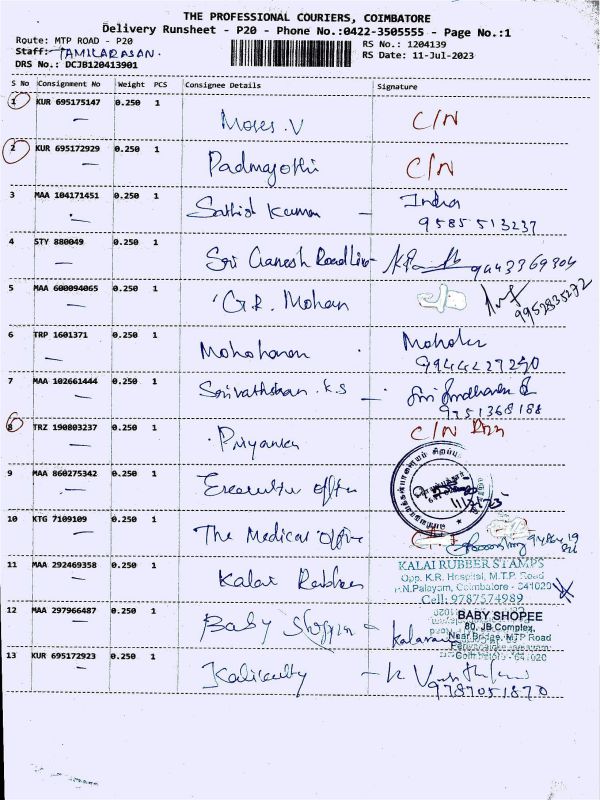 THE PROFESSIONAL COURIERS, COIMBATORE
Delivery Runsheet - P20 - Phone No.:0422-3505555 - Page No.:1
Route: MTP ROAD - P20
RS No.: 1204139
Staff: TAMILARASAN.
RS Date: 11-Jul-2023
DRS No.: DCJB120413901
S No Consignment No Weight PCS Consignee Details Signature
1 KUR 695175147 0.250 1 Moses.V C/N
2 KUR 695172929 0.250 1 Padmajothi C/N
3 MAA 104171451 0.250 1 Sathish Kumar - Indra
9585513237
4 STY 880049 0.250 1 Sri Ganesh Roadlines 9443369304
5 MAA 600094065 0.250 1 G.R. Mohan
9952835272
6 TRP 1601371 0.250 1 Mohohanan
9944227290
7 MAA 102661444 0.250 1 Srivathshan.k.s
9751368188
8 TRZ 190803237 0.250 1 Priyanka C/N
9 MAA 860275342 0.250 1 Executive officer
10 KTG 7109109 0.250 1 The Medical office
11 MAA 292469358 0.250 1 Kalai Rubber
KALAI RUBBER STAMPS
Opp. K.R. Hospital, M.T.P. Road
P.N.Palayam, Coimbatore - 641020
Cell: 9787574989
12 MAA 297966487 0.250 1 Baby Shoppee
BABY SHOPEE
80, JB Complex,
Near Bridge, MTP Road
Coimbatore - 641020
13 KUR 695172923 0.250 1
9787051870